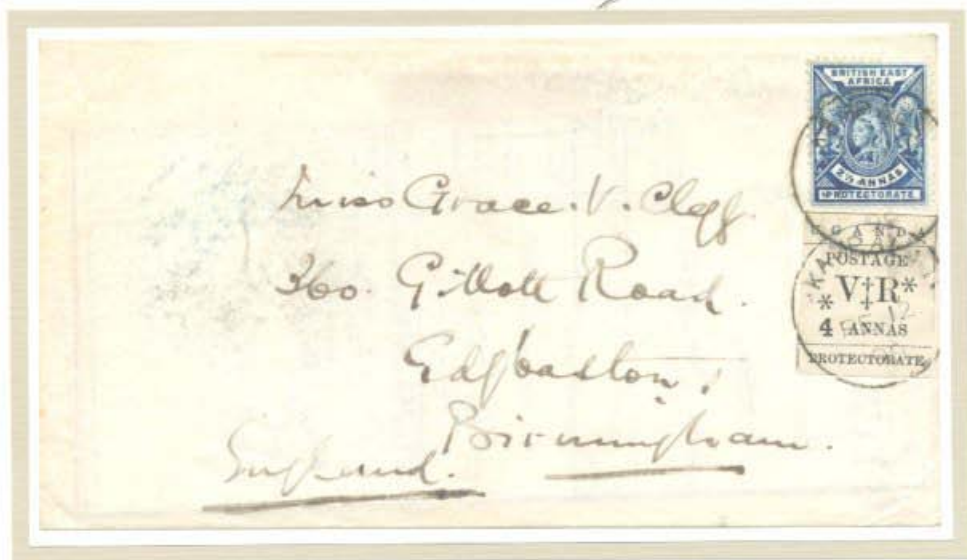 BRITISH EAST
AFRICA
2½ ANNAS
PROTECTORATE
UGANDA
POSTAGE
*V‡R*
4 ANNAS
PROTECTORATE
Miss Grace. V. Clegg.
360. Gillott Road.
Edgbaston.
Birmingham.
England.